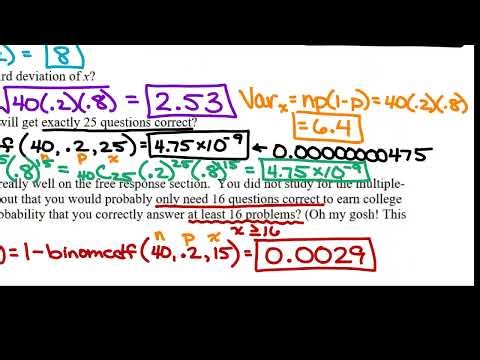 ) = 8
rd deviation of x?
√40(.2)(.8) = 2.53 Varₓ = np(1-p) = 40(.2)(.8)
= 6.4
will get exactly 25 questions correct?
n p x
f(40, .2, 25) = 4.75×10⁻⁹ ← 0.00000000475
(.8)¹⁵ = ₄₀C₂₅(.2)²⁵(.8)¹⁵ = 4.75×10⁻⁹
really well on the free response section. You did not study for the multiple-
out that you would probably only need 16 questions correct to earn college
obability that you correctly answer at least 16 problems? (Oh my gosh! This
x ≥ 16
n p x
) = 1 - binomcdf(40, .2, 15) = 0.0029